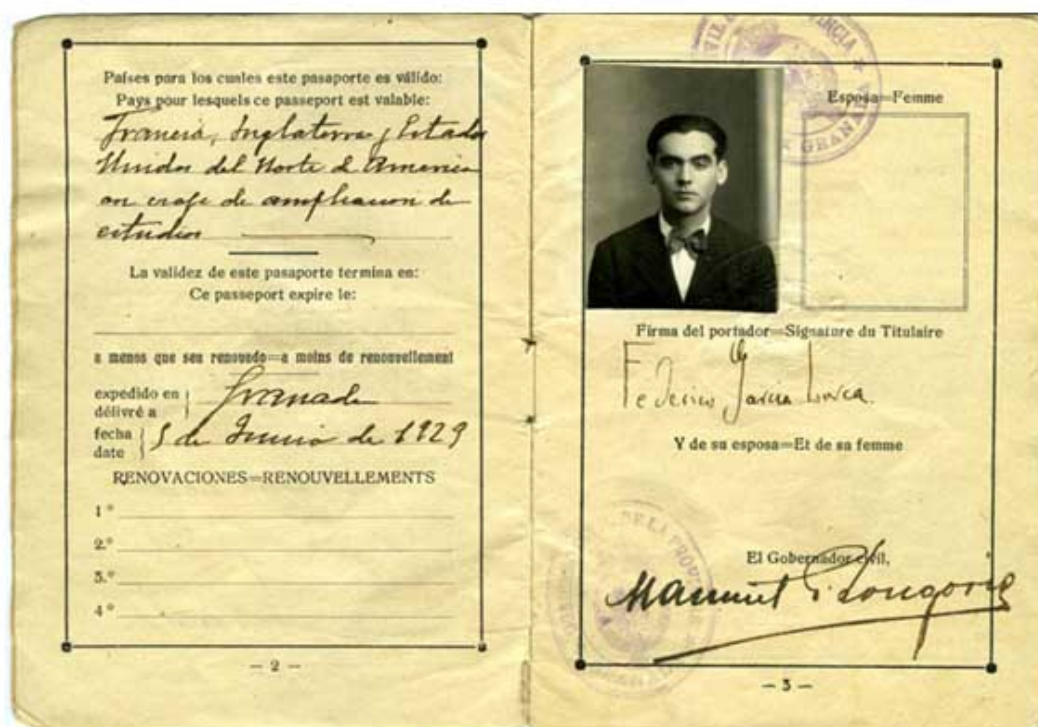 Países para los cuales este pasaporte es válido:
Pays pour lesquels ce passeport est valable:
Francia, Inglaterra y Estados
Unidos del Norte de America
de ampliacion de
estudios
La validez de este pasaporte termina en:
Ce passeport expire le:
a menos que sea renovado=a moins de renouvellement
expedido en
délivré a
Granada
fecha
date
5 de Junio de 1929
RENOVACIONES=RENOUVELLEMENTS
1º
2.º
3.º
4º
– 2 –
GRANADA
Esposa=Femme
Firma del portador=Signature du Titulaire
Federico García Lorca.
Y de su esposa=Et de sa femme
DE LA PROVINCIA
GRANADA
El Gobernador civil,
Manuel
– 3 –